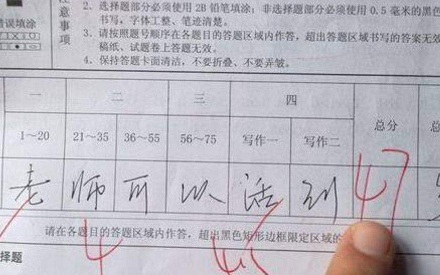 注意事项
错误填涂
2. 选择题部分必须使用 2B 铅笔填涂；非选择题部分必须使用 0.5 毫米的黑色
书写，字体工整、笔迹清楚。
3. 请按照题号顺序在各题目的答题区域内作答，超出答题区域书写的答案无效
稿纸、试题卷上答题无效。
4. 保持答题卡面清洁，不要折叠、不要弄皱。
一 二 三 四 总分
1~20 21~35 36~55 56~75 写作一 写作二
老 师 可 以 活 到 47
请在各题目的答题区域内作答，超出黑色矩形边框限定区域的
择题
4